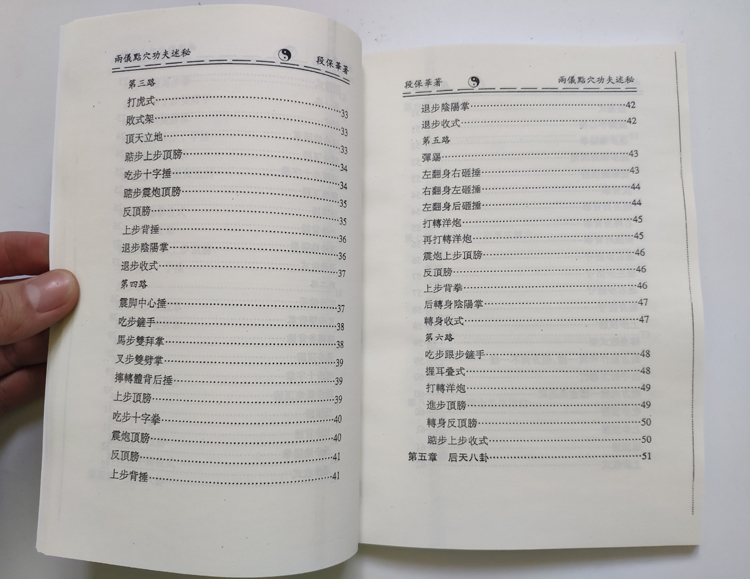 兩儀點穴功夫述秘 段保華著
第三路
打虎式……33
敗式架……33
頂天立地……33
踮步上步頂膀……34
吃步十字捶……34
踮步震炮頂膀……35
反頂膀……35
上步背捶……36
退步陰陽掌……36
退步收式……37
第四路
震脚中心捶……37
吃步鏟手……38
馬步雙拜掌……38
叉步雙劈掌……39
擰轉體背后捶……39
上步頂膀……39
吃步十字拳……40
震炮頂膀……40
反頂膀……41
上步背捶……41
段保華著 兩儀點穴功夫述秘
退步陰陽掌……42
退步收式……42
第五路
彈踢……43
左翻身右砸捶……43
右翻身左砸捶……44
左翻身后砸捶……44
打轉洋炮……45
再打轉洋炮……45
震炮上步頂膀……46
反頂膀……46
上步背拳……46
后轉身陰陽掌……47
轉身收式……47
第六路
吃步跟步鏟手……48
握耳叠式……48
打轉洋炮……49
進步頂膀……49
轉身反頂膀……50
踮步上步收式……50
第五章 后天八卦……51